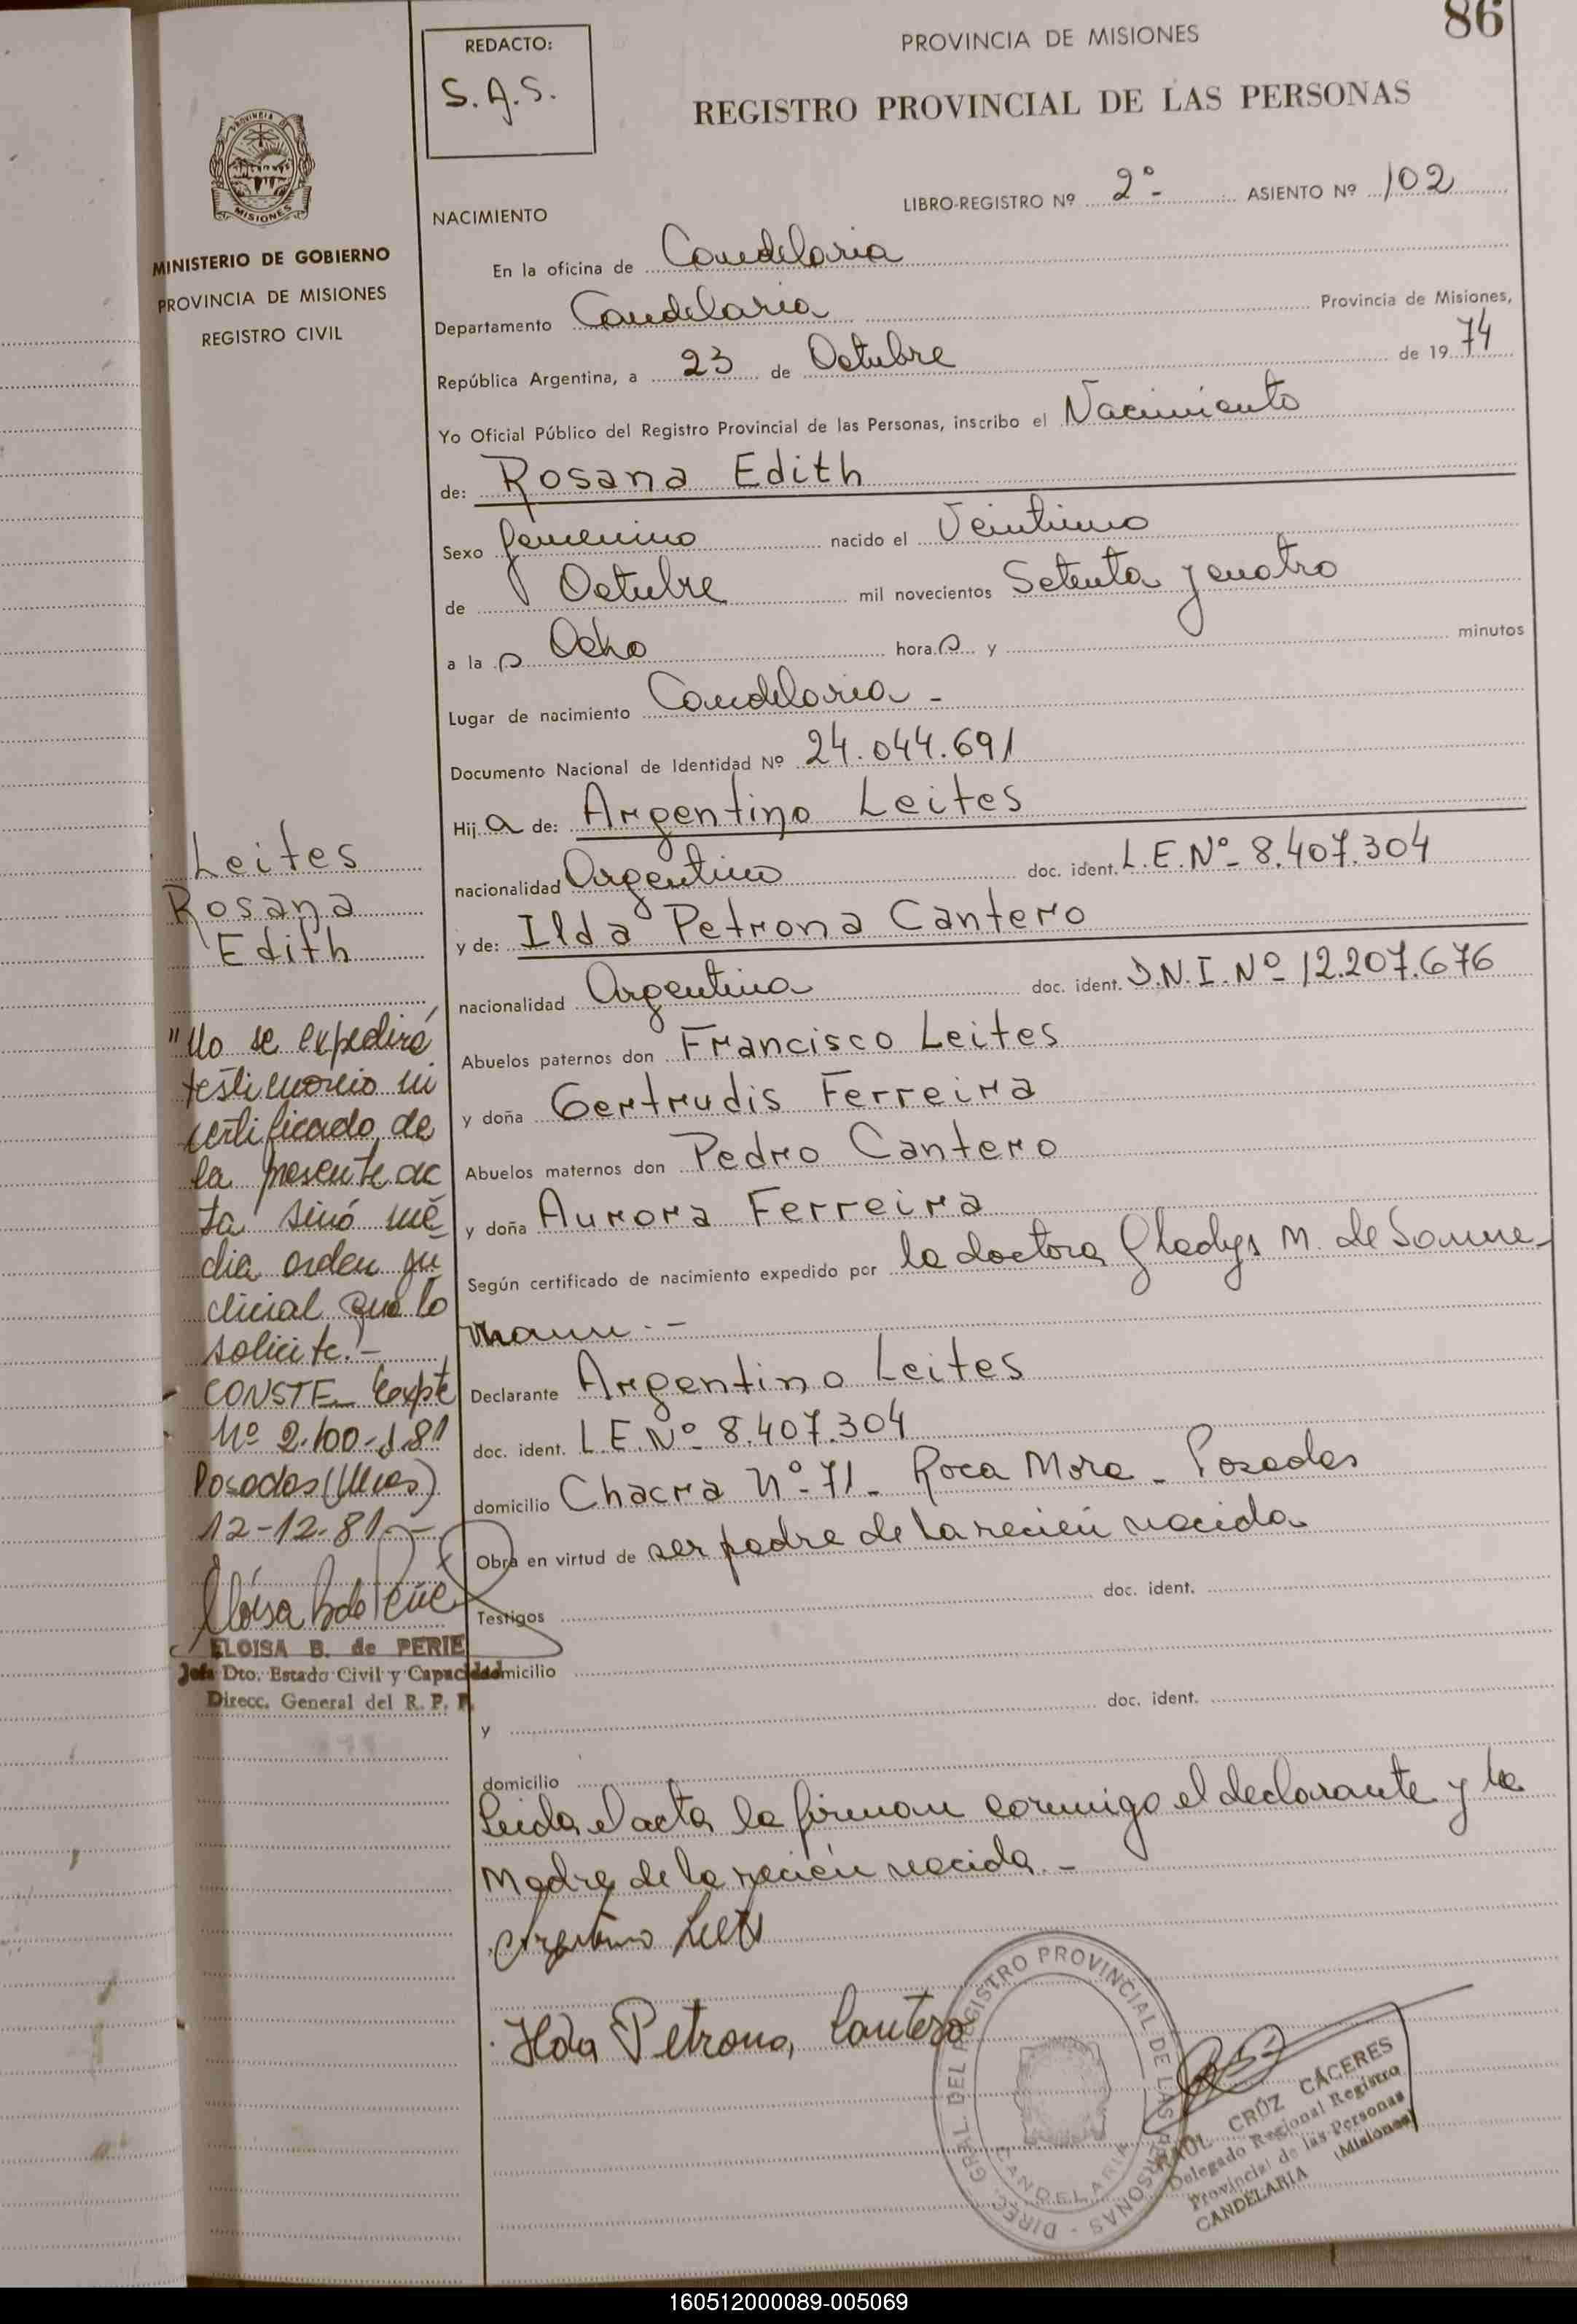 86
REDACTO:
S.A.S.
PROVINCIA DE MISIONES
REGISTRO PROVINCIAL DE LAS PERSONAS
PROVINCIA DE
MISIONES
MINISTERIO DE GOBIERNO
PROVINCIA DE MISIONES
REGISTRO CIVIL
LIBRO-REGISTRO Nº 2º- ASIENTO Nº 102
NACIMIENTO
En la oficina de Candelaria
Departamento Candelaria Provincia de Misiones,
República Argentina, a 23 de Octubre de 1974
Yo Oficial Público del Registro Provincial de las Personas, inscribo el Nacimiento
de: Rosana Edith
Sexo femenino nacido el Veintiuno
de Octubre mil novecientos Setenta y cuatro
a las Ocho horas y minutos
Lugar de nacimiento Candelaria -
Documento Nacional de Identidad Nº 24.044.691
Hija de: Argentino Leites
nacionalidad Argentino doc. ident. L.E.Nº- 8.407.304
y de: Ilda Petrona Cantero
nacionalidad Argentina doc. ident. D.N.I.Nº- 12.207.676
Abuelos paternos don Francisco Leites
y doña Gertrudis Ferreira
Abuelos maternos don Pedro Cantero
y doña Aurora Ferreira
Según certificado de nacimiento expedido por la doctora Gladys M. de
Declarante Argentino Leites
doc. ident. L.E.Nº 8.407.304
domicilio Chacra Nº-71- Roca Mora - Posadas
Obra en virtud de ser padre de la recien nacida
Testigos doc. ident.
domicilio
y doc. ident.
domicilio
Leida el acta la firman conmigo el declarante y la
Madre de la recien nacida -
Argentino Leites
Ilda Petrona Cantero
Leites
Rosana
Edith
"No se expedirá
testimonio ni
certificado de
la presente ac
ta sinó mé
dia orden ju
dicial que lo
solicite."-
CONSTE- Expte
Nº 2.100-J-81
Posadas (Mnes)
12-12-81.-
Eloisa B de Perie
ELOISA B. de PERIE
Jefa Dto. Estado Civil y Capacidad
Direcc. General del R. P. P.
DIREC. GRAL. DEL REGISTRO PROVINCIAL DE LAS PERSONAS -
CANDELARIA
RAUL CRUZ CÁCERES
Delegado Regional Registro
Provincial de las Personas
CANDELARIA (Misiones)
160512000089-005069